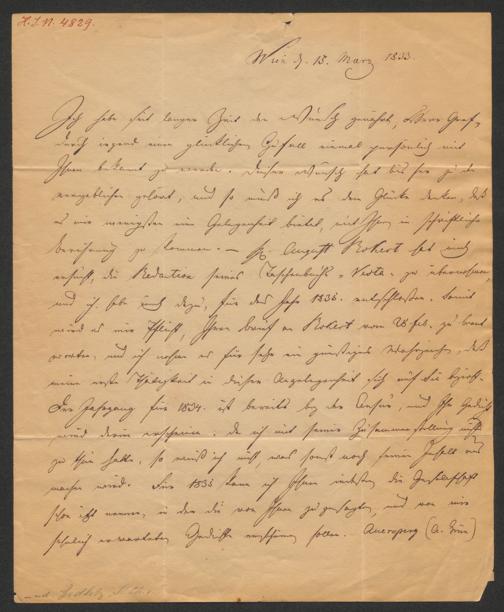 H.I.N. 4829.
Wien d. 15. März 1833.
Ich habe seit langer Zeit den Wunsch genährt, Herr Graf,
durch irgend einen glücklichen Zufall einmal persönlich mit
Ihnen bekannt zu werden. Dieser Wunsch hat bis her zu den
vergeblichen gehört, und so muß ich es dem Glücke danken, daß
es mir wenigstens eine Gelegenheit bietet, mit Ihnen in schriftliche
Berührung zu kommen. — August Rokert hat mich
ersucht, die Redaction seines Taschenbuchs "Vesta" zu übernehmen,
und ich habe mich dazu, für das Jahr 1835. entschlossen. Somit
wird es mir Pflicht, Ihren Brief an Rokert vom 28 feb. zu beant
worten, und ich nehme es für sehr ein günstiges Wahrzeichen, daß
meine erste Thätigkeit in dieser Angelegenheit sich auf Sie bezieht.
Der Jahrgang für 1834. ist bereits bey der Censur, und Ihr Gedicht
wird darin erscheinen. Da ich mit seiner Zusammenstellung nichts
zu thun hatte, so weiß ich nicht, was sonst noch seinen Inhalt aus
machen wird. Für 1835 kann ich Ihnen indessen die Gesellschaft
schon jetzt nennen, in der die von Ihnen zugesagten, und von mir
sehnlich erwarteten Gedichte erscheinen sollen. Auersperg (A. Grün)